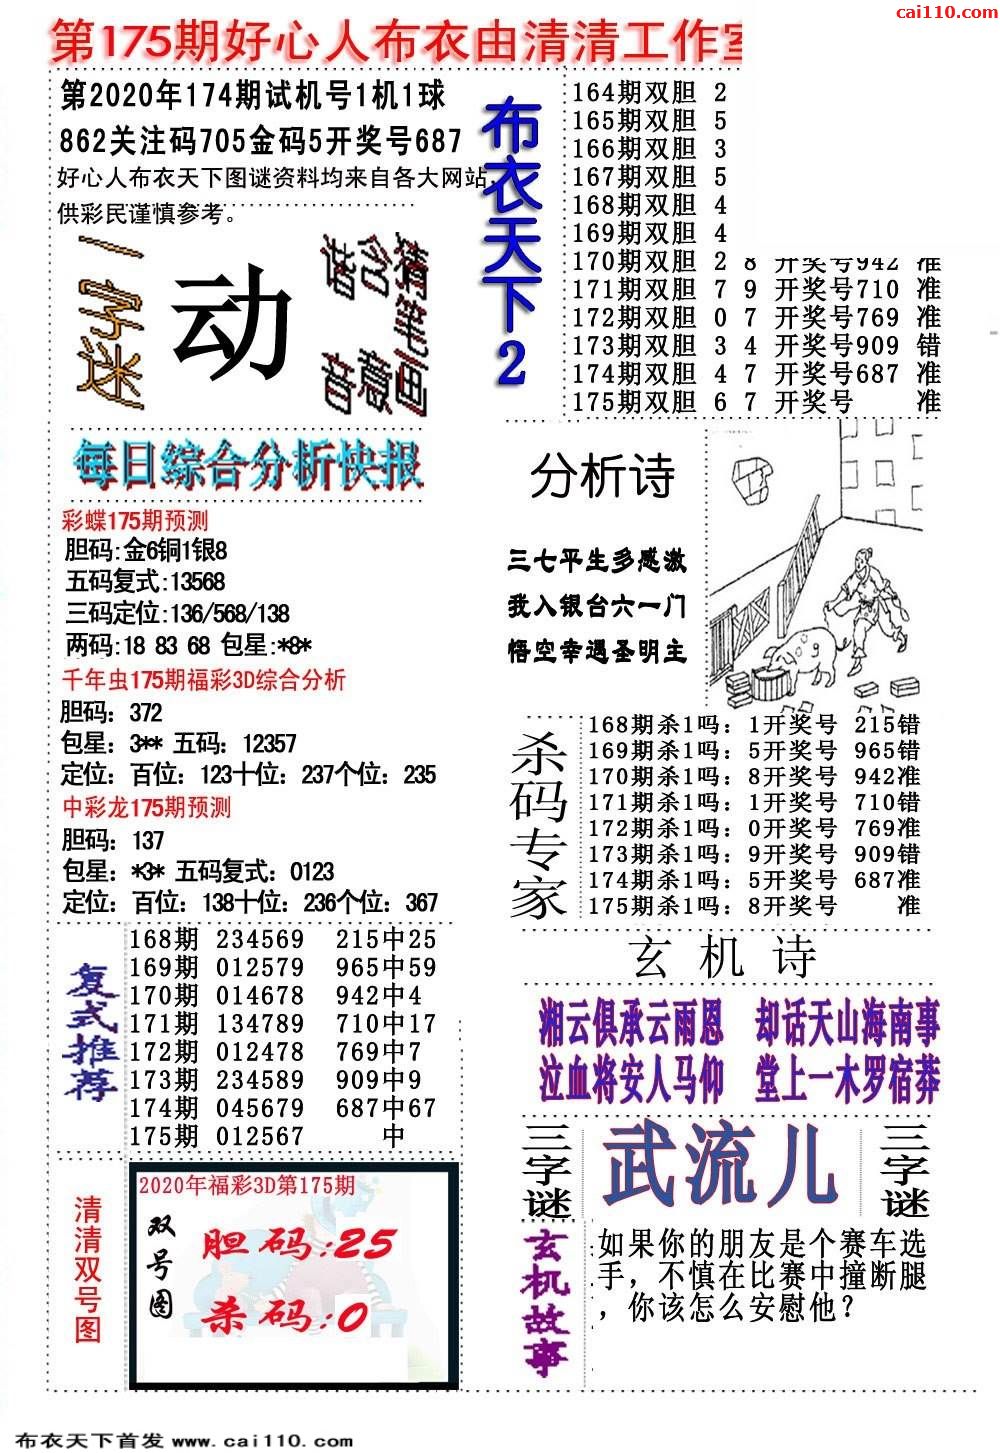 cai110.com
第175期好心人布衣由清清工作室
第2020年174期试机号1机1球
862关注码705金码5开奖号687
好心人布衣天下图谜资料均来自各大网站,
供彩民谨慎参考。
布衣天下2
164期双胆 2
165期双胆 5
166期双胆 3
167期双胆 5
168期双胆 4
169期双胆 4
170期双胆 2 8 开奖号942 准
171期双胆 7 9 开奖号710 准
172期双胆 0 7 开奖号769 准
173期双胆 3 4 开奖号909 错
174期双胆 4 7 开奖号687 准
175期双胆 6 7 开奖号 准
一字迷
动
猜笔画
含意
谐音
每日综合分析快报
彩蝶175期预测
胆码:金6铜1银8
五码复式:13568
三码定位:136/568/138
两码:18 83 68 包星:*8*
千年虫175期福彩3D综合分析
胆码：372
包星：3** 五码：12357
定位：百位：123十位：237个位：235
中彩龙175期预测
胆码：137
包星：*3* 五码复式：0123
定位：百位：138十位：236个位：367
分析诗
三七平生多感激
我入银台六一门
悟空幸遇圣明主
杀码专家
168期杀1吗：1开奖号 215错
169期杀1吗：5开奖号 965错
170期杀1吗：8开奖号 942准
171期杀1吗：1开奖号 710错
172期杀1吗：0开奖号 769准
173期杀1吗：9开奖号 909错
174期杀1吗：5开奖号 687准
175期杀1吗：8开奖号 准
复式推荐
168期 234569 215中25
169期 012579 965中59
170期 014678 942中4
171期 134789 710中17
172期 012478 769中7
173期 234589 909中9
174期 045679 687中67
175期 012567 中
玄机诗
湘云俱承云雨恩 却话天山海南事
泣血将安人马仰 堂上一木罗宿莽
三字谜
武流儿
三字谜
清清双号图
2020年福彩3D第175期
双号图
胆码:25
杀码:0
玄机故事
如果你的朋友是个赛车选
手，不慎在比赛中撞断腿
，你该怎么安慰他？
布衣天下首发 www.cai110.com